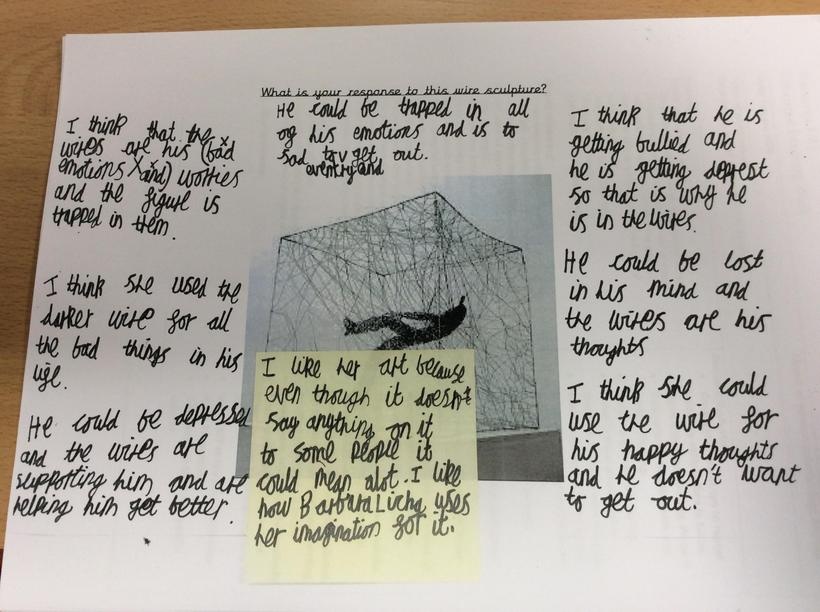 What is your response to this wire sculpture?
I think that the
wires are his (bad
emotions X and) worries
and the figure is
trapped in them.
I think she used the
darker wire for all
the bad things in his
life.
He could be depressed
and the wires are
supporting him and are
helping him get better.
He could be trapped in all
of his emotions and is to
sad get out.
and
I like her art because
even though it doesn't
say anything on it
to some people it
could mean alot. I like
how Barbara Licha uses
her imagination for it.
I think that he is
getting bullied and
he is getting deprest
so that is why he
is in the wires.
He could be lost
in his mind and
the wires are his
thoughts
I think she could
use the wire for
his happy thoughts
and he doesn't want
to get out.